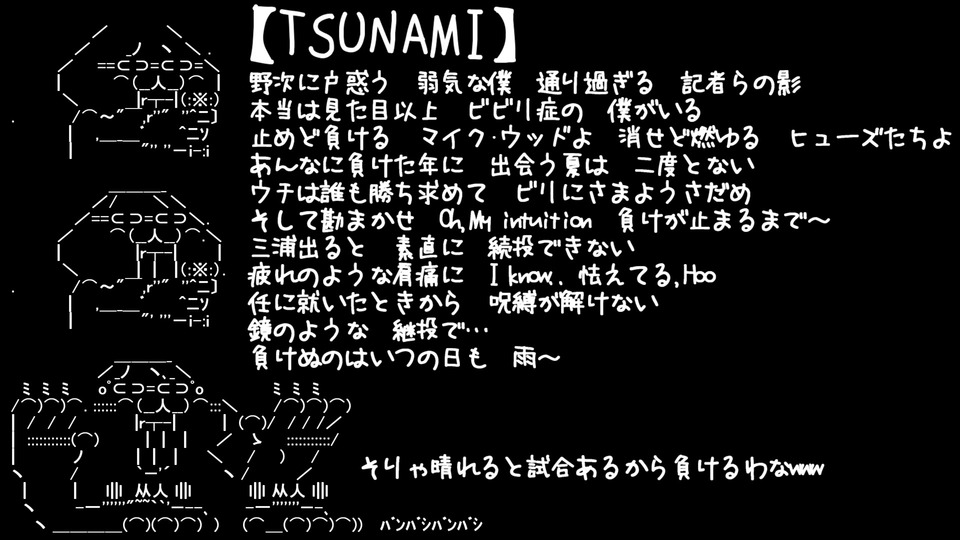 【TSUNAMI】
野次に戸惑う 弱気な僕 通り過ぎる 記者らの影
本当は見た目以上 ビビリ症の 僕がいる
止めど負ける マイク・ウッドよ 消せど燃ゆる ヒューズたちよ
あんなに負けた年に 出会う夏は 二度とない
ウチは誰も勝ち求めて ビリにさまようさだめ
そして勘まかせ Oh,My intuition 負けが止まるまで～
三浦出ると 素直に 続投できない
疲れのような肩痛に I know.. 怯えてる,Hoo
任に就いたときから 呪縛が解けない
鏡のような 継投で…
負けぬのはいつの日も 雨～
そりゃ晴れると試合あるから負けるわなwww
バンバシバンバシ